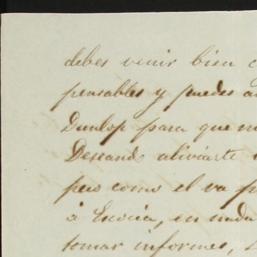 debes venir bien
pensables y puedes
Dunlop para que
Deseando aliviarte
pero como el va
à Escocia, en nada
tomar informes,